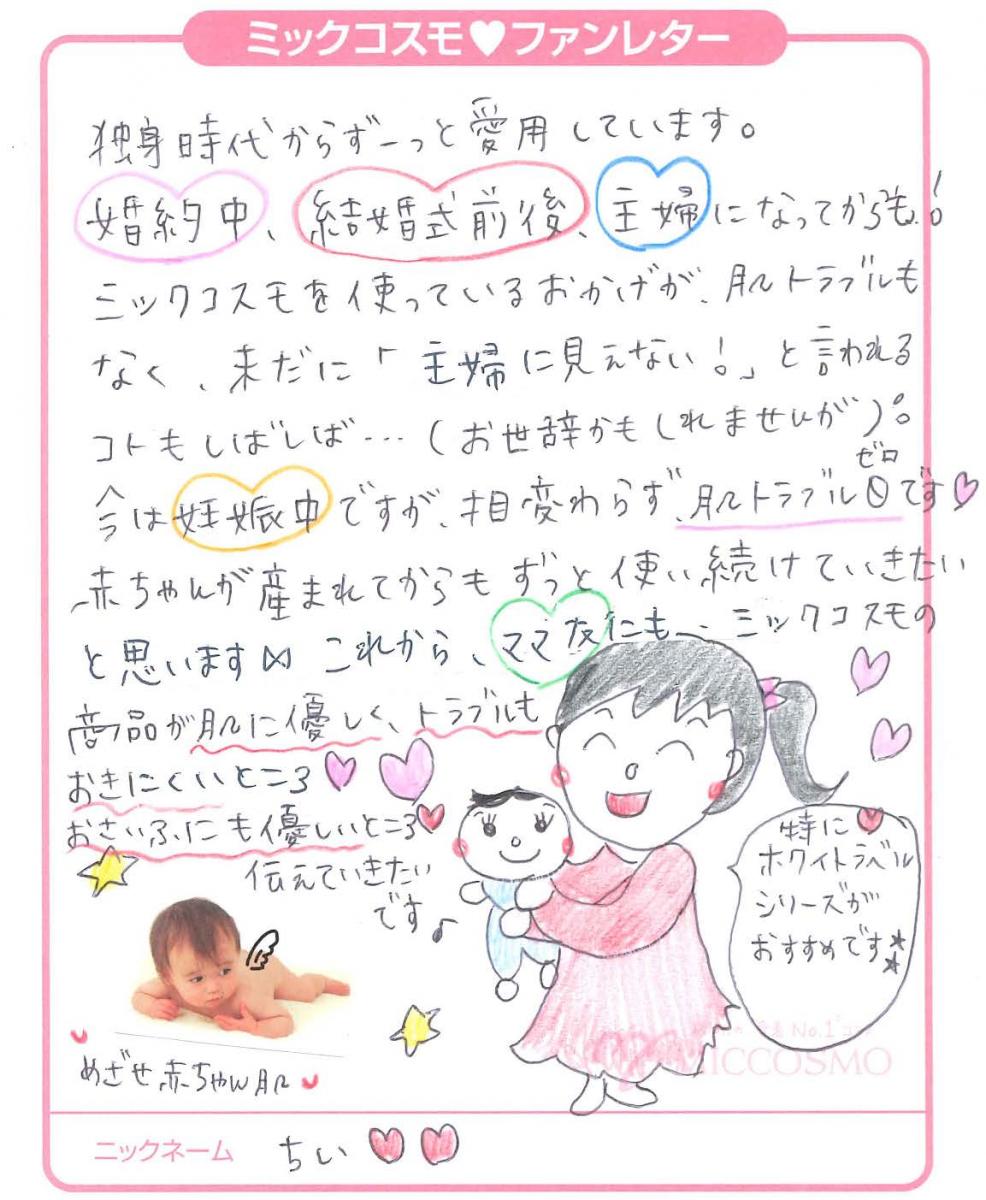 ミックコスモ♥ファンレター
独身時代からずーっと愛用しています。
婚約中、結婚式前後、主婦になってからも!
ミックコスモを使っているおかげか、肌トラブルも
なく、未だに「主婦に見えない!」と言われる
コトもしばしば…(お世辞かもしれませんが)。
ゼロ
今は妊娠中ですが、相変わらず、肌トラブル0です♥
赤ちゃんが産まれてからもずっと使い続けていきたい
と思います⋈ これから、ママ友にも、ミックコスモの
商品が肌に優しく、トラブルも
おきにくいところ♥
おさいふにも優しいところ♥
伝えていきたい
です♪
特に♥
ホワイトラベル
シリーズが
おすすめです★★
No.1
MICCOSMO
めざせ赤ちゃん肌
ニックネーム ちい♥♥